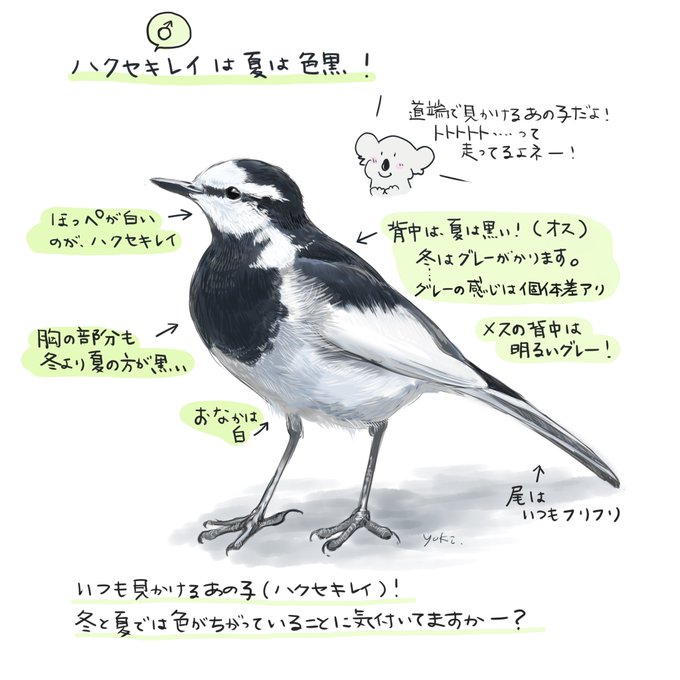 ♂
ハクセキレイは夏は色黒！
道端で見かけるあの子だよ！
トトトトト‥‥って
走ってるよネー！
ほっぺが白い
のが、ハクセキレイ
背中は、夏は黒い！（オス）
冬はグレーがかります。
グレーの感じは個体差アリ
メスの背中は
明るいグレー！
胸の部分も
冬より夏の方が黒い
おなかは
白
尾は
いつもフリフリ
yuki.
いつも見かけるあの子（ハクセキレイ）！
冬と夏では色がちがっていることに気付いてますかー？